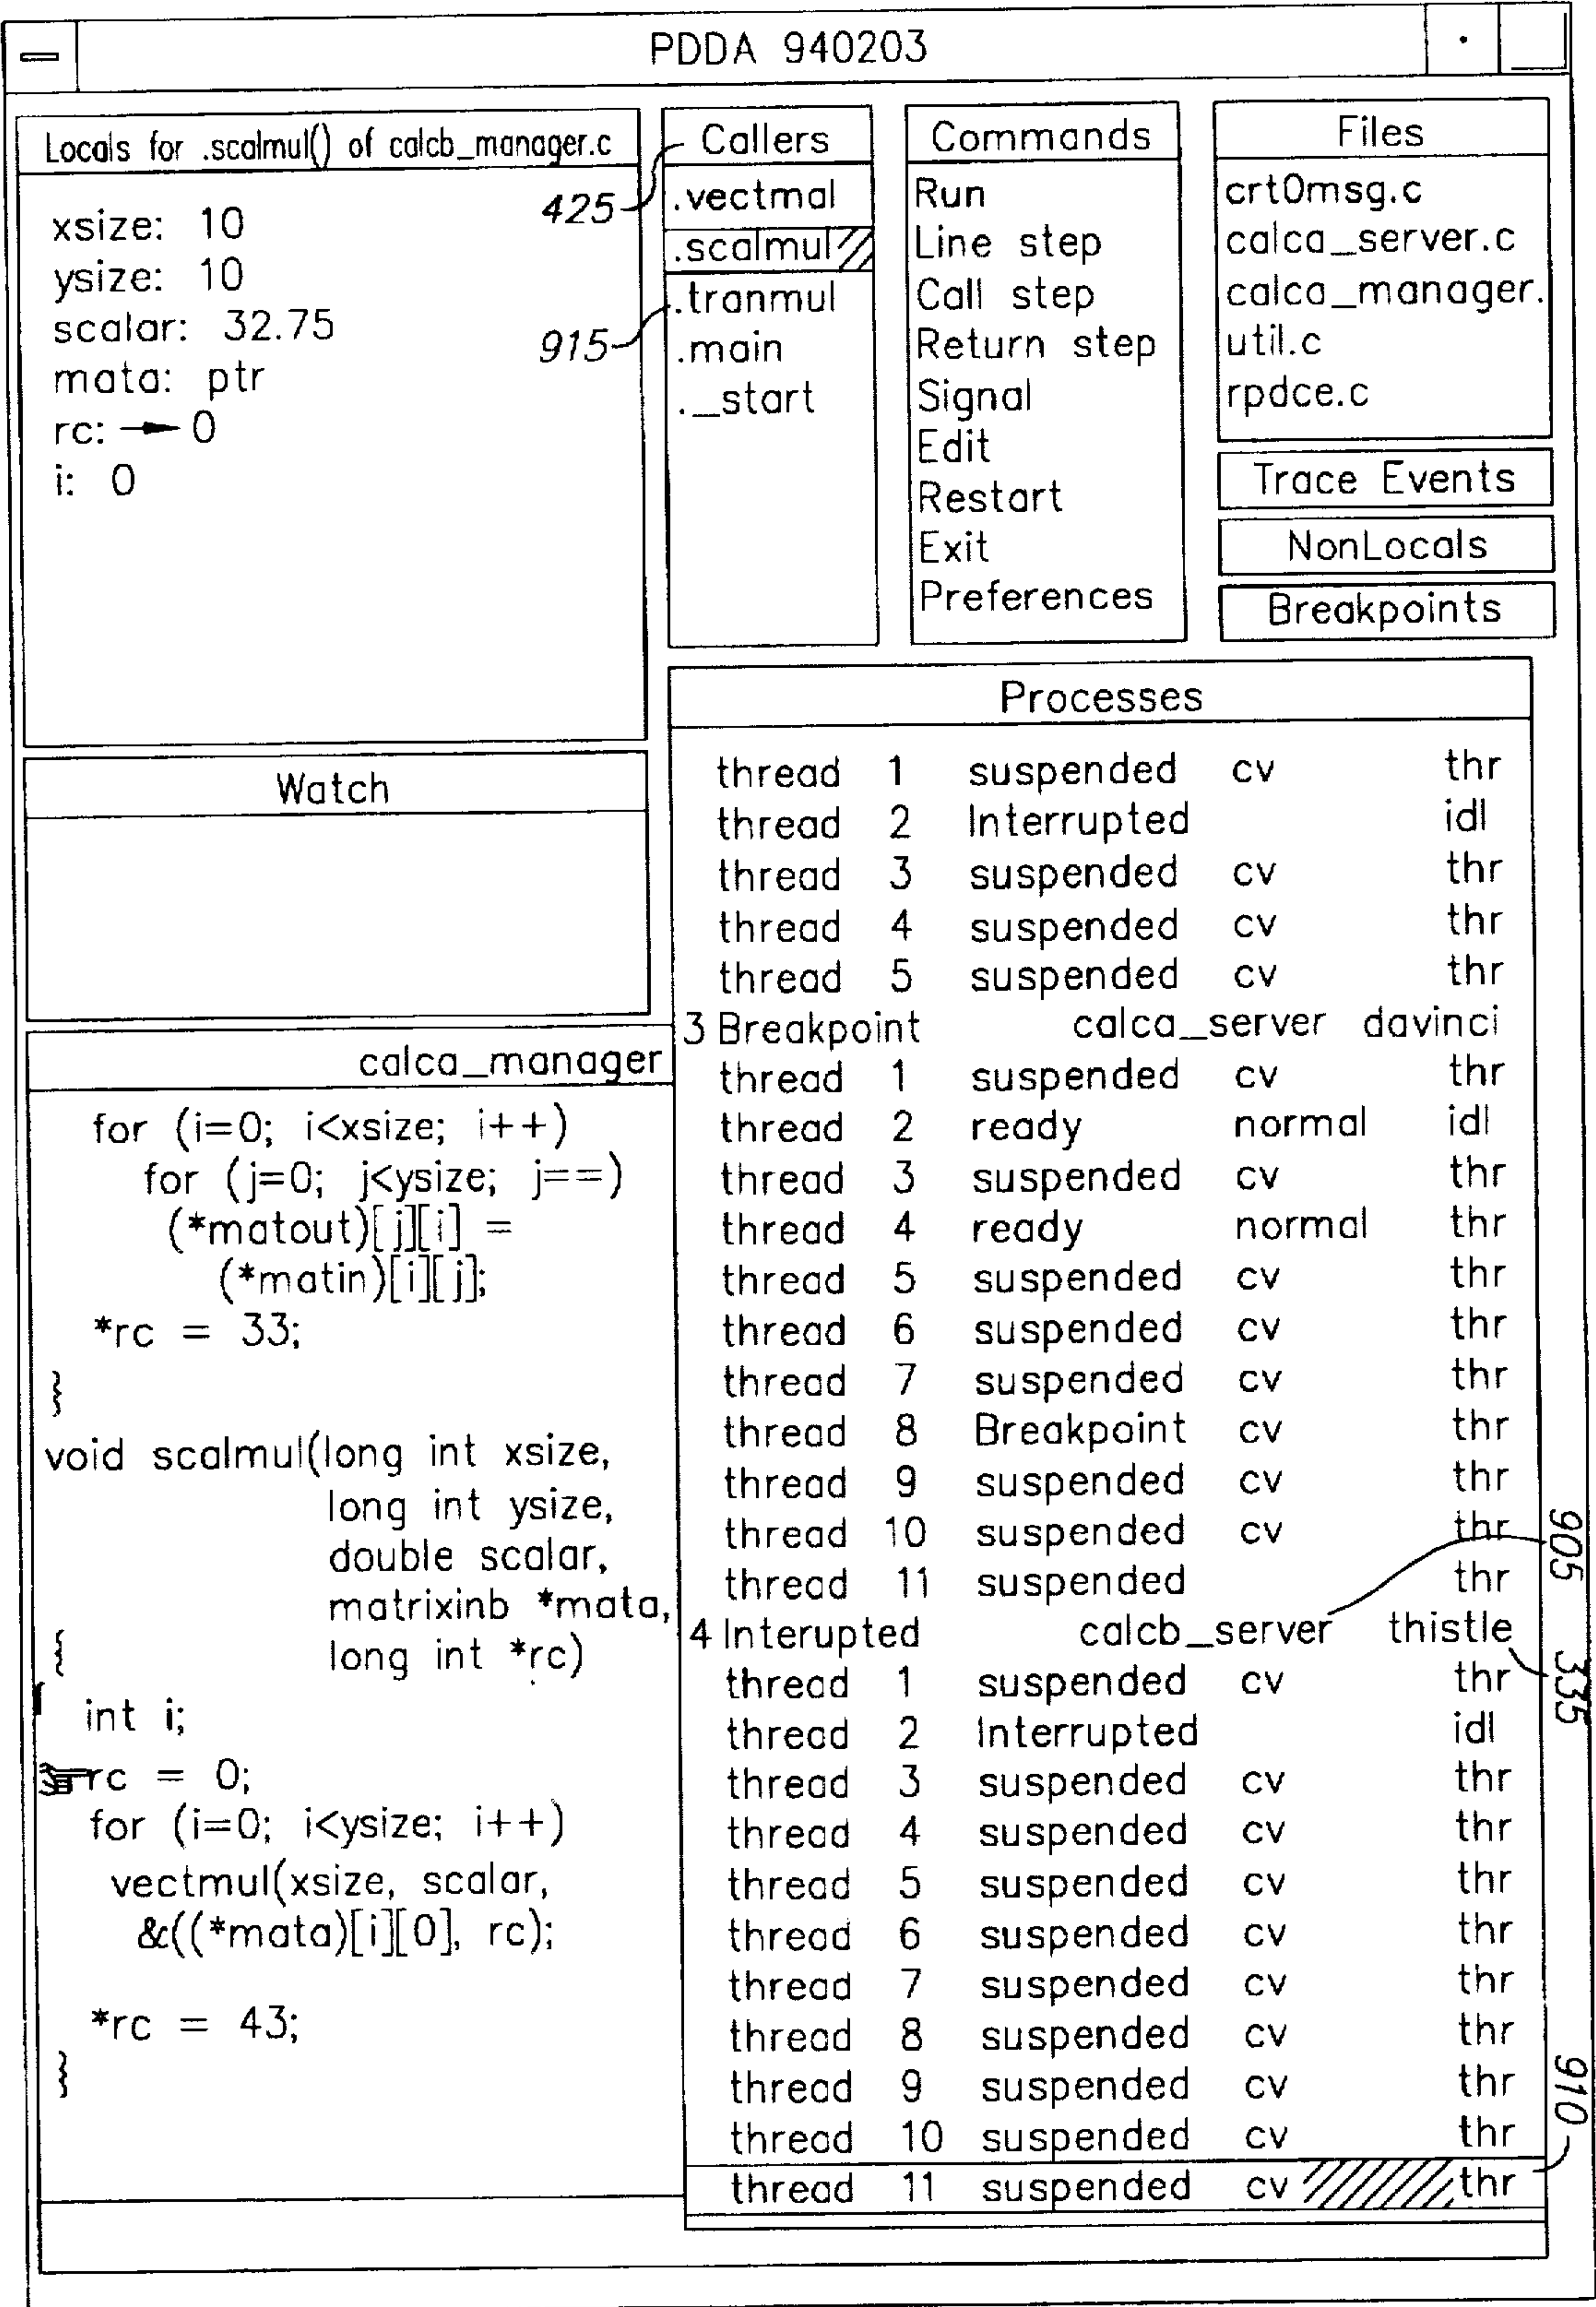 PDDA 940203
Locals for .scalmul() of calcb_manager.c
xsize: 10
ysize: 10
scalar: 32.75
mata: ptr
rc: → 0
i: 0
425
915
Callers
.vectmal
.scalmul
.tranmul
.main
._start
Commands
Run
Line step
Call step
Return step
Signal
Edit
Restart
Exit
Preferences
Files
crt0msg.c
calca_server.c
calca_manager.
util.c
rpdce.c
Trace Events
NonLocals
Breakpoints
Watch
calca_manager
for (i=0; i<xsize; i++)
for (j=0; j<ysize; j==)
(*matout)[j][i] =
(*matin)[i][j];
*rc = 33;
}
void scalmul(long int xsize,
long int ysize,
double scalar,
matrixinb *mata,
{ long int *rc)
int i;
rc = 0;
for (i=0; i<ysize; i++)
vectmul(xsize, scalar,
&((*mata)[i][0], rc);
*rc = 43;
}
Processes
thread 1 suspended cv thr
thread 2 Interrupted idl
thread 3 suspended cv thr
thread 4 suspended cv thr
thread 5 suspended cv thr
3 Breakpoint calca_server davinci
thread 1 suspended cv thr
thread 2 ready normal idl
thread 3 suspended cv thr
thread 4 ready normal thr
thread 5 suspended cv thr
thread 6 suspended cv thr
thread 7 suspended cv thr
thread 8 Breakpoint cv thr
thread 9 suspended cv thr
thread 10 suspended cv thr
thread 11 suspended thr
4 Interupted calcb_server thistle
thread 1 suspended cv thr
thread 2 Interrupted idl
thread 3 suspended cv thr
thread 4 suspended cv thr
thread 5 suspended cv thr
thread 6 suspended cv thr
thread 7 suspended cv thr
thread 8 suspended cv thr
thread 9 suspended cv thr
thread 10 suspended cv thr
thread 11 suspended cv thr
905
335
910